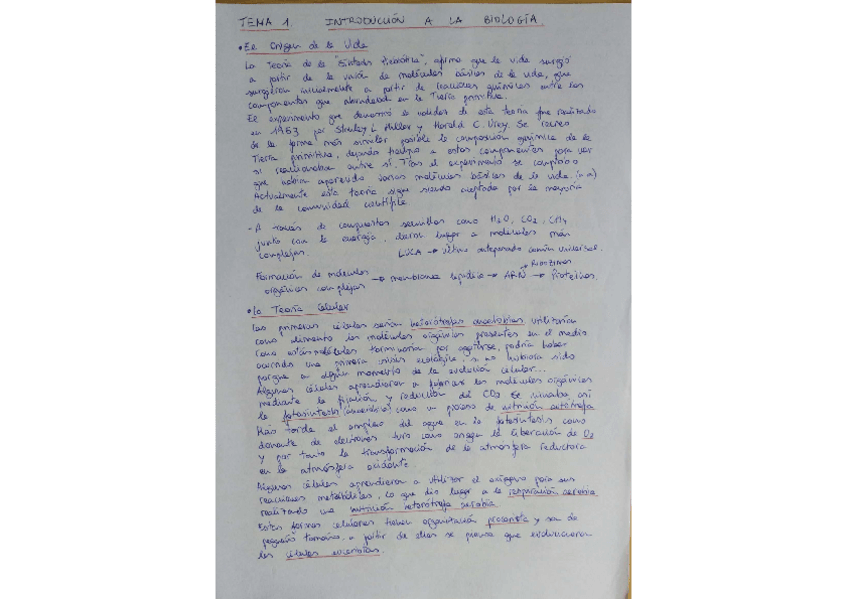 TEMA 1. INTRODUCCIÓN A LA BIOLOGÍA.
• El Origen de la Vida
La Teoría de la "Síntesis Prebiótica", afirma que la vida surgió
a partir de la unión de moléculas básicas de la vida, que
surgieron inicialmente a partir de reacciones químicas entre los
componentes que abundaban en la Tierra primitiva.
El experimento que demostró la validez de esta teoría fue realizado
en 1953 por Stanley L. Miller y Harold C. Urey. Se recreó
de la forma más similar posible la composición química de la
Tierra primitiva, dejando tiempo a estos componentes para ver
si reaccionaban entre sí. Tras el experimento se comprobó
que habían aparecido varias moléculas básicas de la vida.
Actualmente esta teoría sigue siendo aceptada por la mayoría
de la comunidad científica.
- A través de compuestos sencillos como H2O, CO2, CH4
junto con la energía, dieron lugar a moléculas más
complejas. LUCA → último antepasado común universal.
Formación de moléculas orgánicas complejas → membrana lipídica → ARN → Proteínas.
Ribozimas
• La Teoría Celular
Las primeras células serían heterótrofas anaerobias utilizarían
como alimento las moléculas orgánicas presentes en el medio
como estas moléculas terminarían por agotarse, podría haber
ocurrido una primera crisis ecológica, si no hubiera sido
porque en algún momento de la evolución celular...
Algunas células aprendieron a fabricar las moléculas orgánicas
mediante la fijación y reducción del CO2 se iniciaba así
la fotosíntesis como un proceso de nutrición autótrofa
Más tarde el empleo del agua en la fotosíntesis como
donante de electrones tuvo como origen la liberación de O2
y por tanto la transformación de la atmósfera reductora
en la atmósfera oxidante.
Algunas células aprendieron a utilizar el oxígeno para sus
reacciones metabólicas, lo que dio lugar a la respiración aerobia
realizando una nutrición heterótrofa aerobia
Estas formas celulares tienen organización procariota y son de
pequeño tamaño, a partir de ellas se piensa que evolucionaron
las células eucariotas.